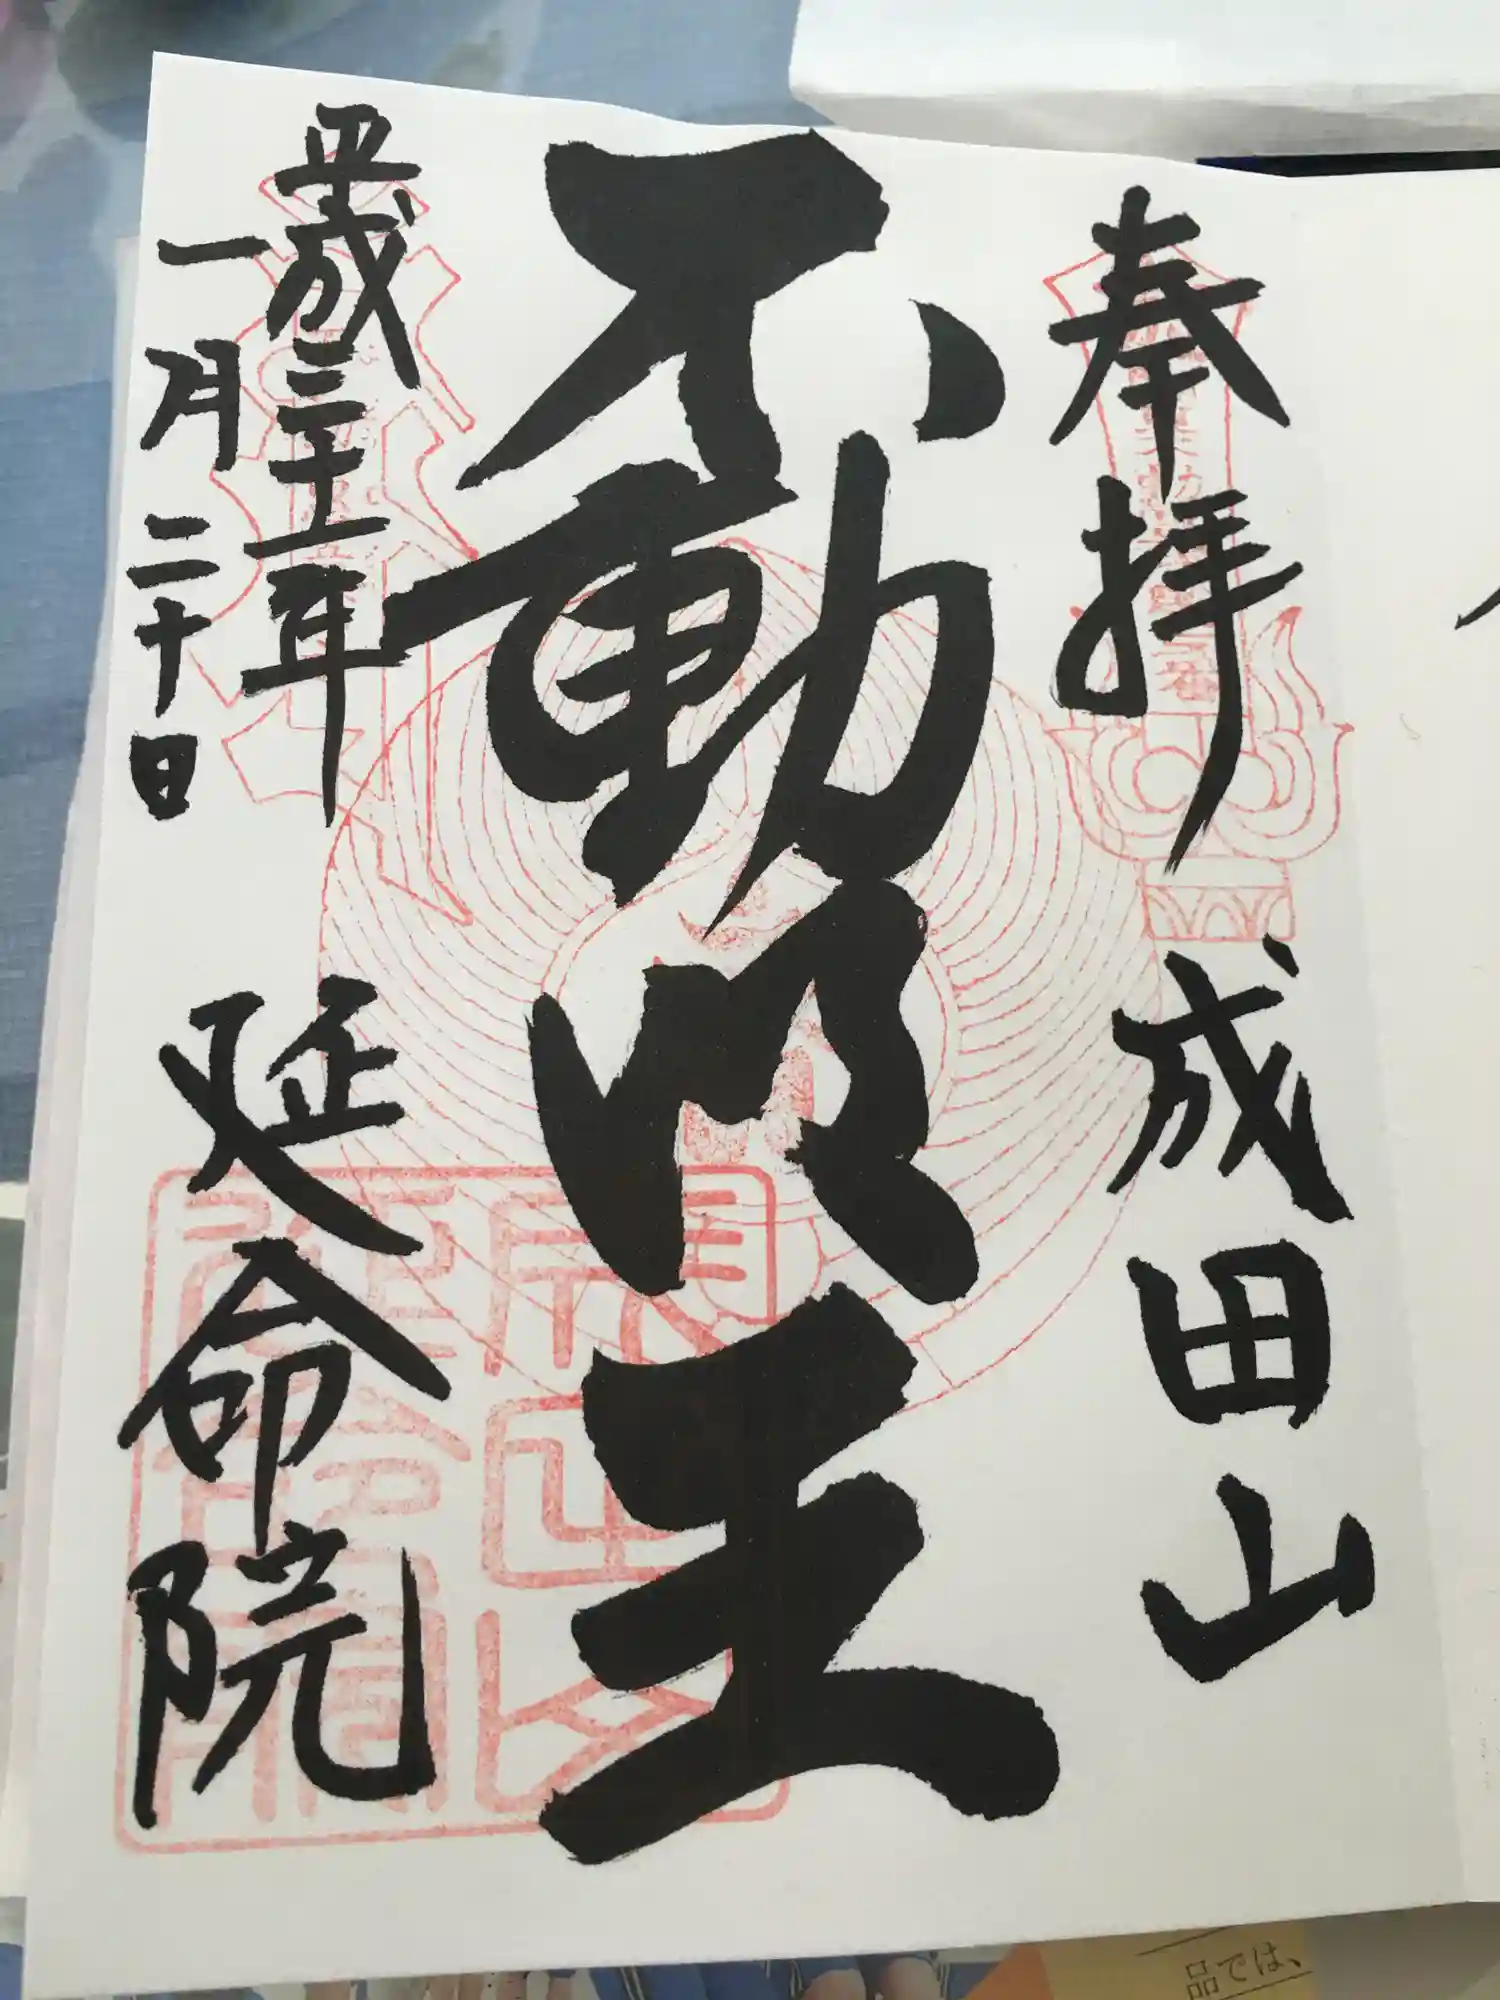 奉拝 成田山
不動明王
平成三十一年
一月二十日
延命院
品では、